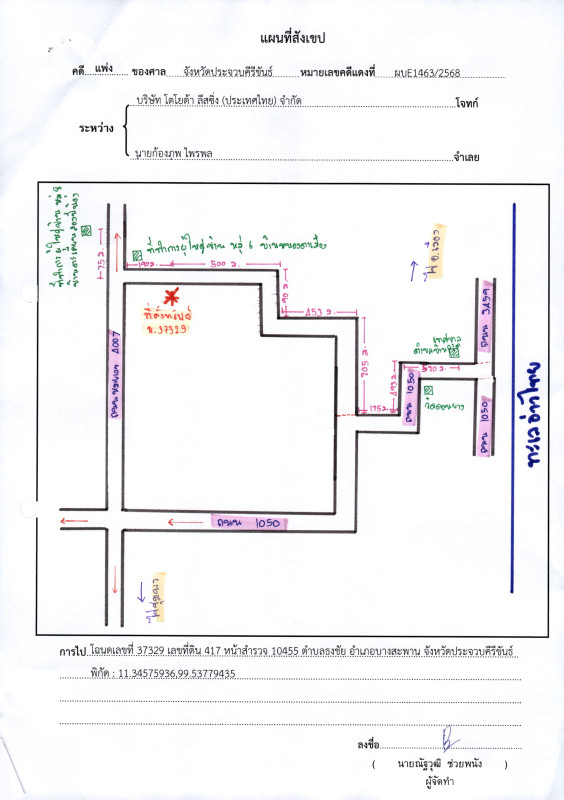 แผนที่สังเขป
คดี แพ่ง ของศาล จังหวัดประจวบคีรีขันธ์ หมายเลขคดีแดงที่ ผบE1463/2568
บริษัท โตโยต้า ลีสซิ่ง (ประเทศไทย) จำกัด โจทก์
ระหว่าง
นายก้องภพ ไพรพล จำเลย
75 ม.
ที่ทำการผู้ใหญ่บ้าน หมู่ 6
190 ม.
500 ม.
90 ม.
453 ม.
ที่ตั้งทรัพย์
ฉ.37329
705 ม.
ถนน 3459
เทศบาล
590 ม.
493 ม.
175 ม.
ถนน 1050
วัดดอนยาง
ถนน 1050
ทะเลอ่าวไทย
4007
ถนน 1050
การไป โฉนดเลขที่ 37329 เลขที่ดิน 417 หน้าสำรวจ 10455 ตำบลธงชัย อำเภอบางสะพาน จังหวัดประจวบคีรีขันธ์
พิกัด : 11.34575936,99.53779435
ลงชื่อ
( นายณัฐวุฒิ ช่วยพนัง )
ผู้จัดทำ